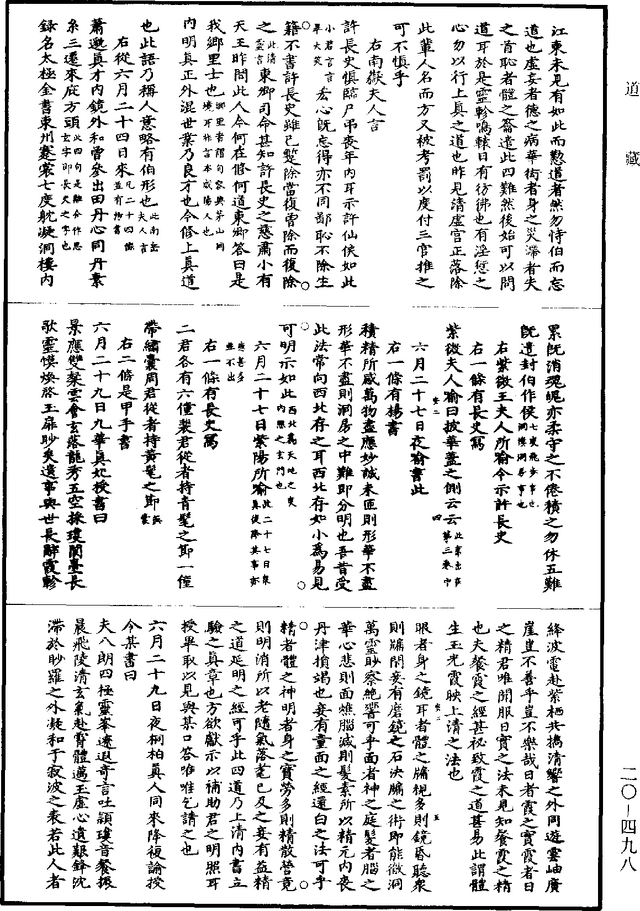 道藏
江東未見有如此而懃道者然勿恃伯而忘
道也虛妄者德之病華衒者身之災滯者失
之首恥者體之籥遣此四難然後始可以問
道耳於是靈軫鳴轅日有彷彿也有淫愆之
心勿以行上真之道也昨見清虛宮正落除
此輩人名而方又被考罰以度付三官推之
可不慎乎
右南嶽夫人言
許長史慎臨尸弔喪年內耳示許仙侯如此
玄心既忘得亦不同鄙恥不除生
籍不書許長史雖已整除當復曾除而復除
之東鄉司命甚知許長史之慈肅小有
天王昨問此人今何在修何道東鄉答曰是
我鄉里士也
內明真正外混世業乃良才也今修上真道
也此語乃稱人意略有伯形也
右從六月二十四日來
蕭邈真才內鏡外和曾參出田丹心同丹素
系三遷來庇方頭
錄名太極金書東州蹇裳七度躭凝洞樓內
累既消魂魄亦柔守之不倦積之勿休五難
既遣封伯作侯
右紫微王夫人所喻令示許長史
右一條有長史寫
紫微夫人喻曰披華蓋之側云云
六月二十七日夜喻書此
右一條有楊書
積精所感萬物盡應妙誠未匝則形華不盡
形華不盡則洞房之中難即分明也吾昔受
此法常向西北存之耳西北存如小為易見
可明示如此
六月二十七日紫陽所喻
右一條有長史寫
二君各有六僮裴君從者持青髦之節一僮
帶繡囊周君從者持黃髦之節
右二條是甲手書
六月二十九日九華真妃授書曰
景應雙粲雲會玄落龍秀五空採瓊閬臺長
歌靈馔煥於玉扉眇矣遺事與世長辭霞軫
絳波電赴紫栖共攜清響之外同遊雲岫廣
崖豈不善乎豈不樂哉日者霞之實霞者日
之精君唯聞服日實之法未見知餐霞之精
也夫餐霞之經甚祕致霞之道甚易此謂體
生玉光霞映上清之法也
眼者身之鏡耳者體之牖視多則鏡昏聽衆
則牖閉妾有磨鏡之石決牖之術即能徹洞
萬靈眇察絕響可乎面者神之庭髮者腦之
華心悲則面燋腦減則髮素所以精元內喪
丹津損竭也妾有童面之經還白之法可乎
精者體之神明者身之寶勞多則精散營竟
則明消所以老隨氣落耄已及之妾有益精
之道延明之經可乎此四道乃上清內書立
驗之真章也方欲獻示以補助君之明照耳
授畢取以見與某口答唯唯乞請之也
六月二十九日夜桐柏真人同來降複諭授
令某書曰
夫八朗四極靈峯遼遐奇言吐頴瓊音餐振
晨飛陵清玄氣赴霄體邁玉虛心遺艱鋒沈
滯於眇羅之外凝和于寂波之表若此人者
二〇—四九八